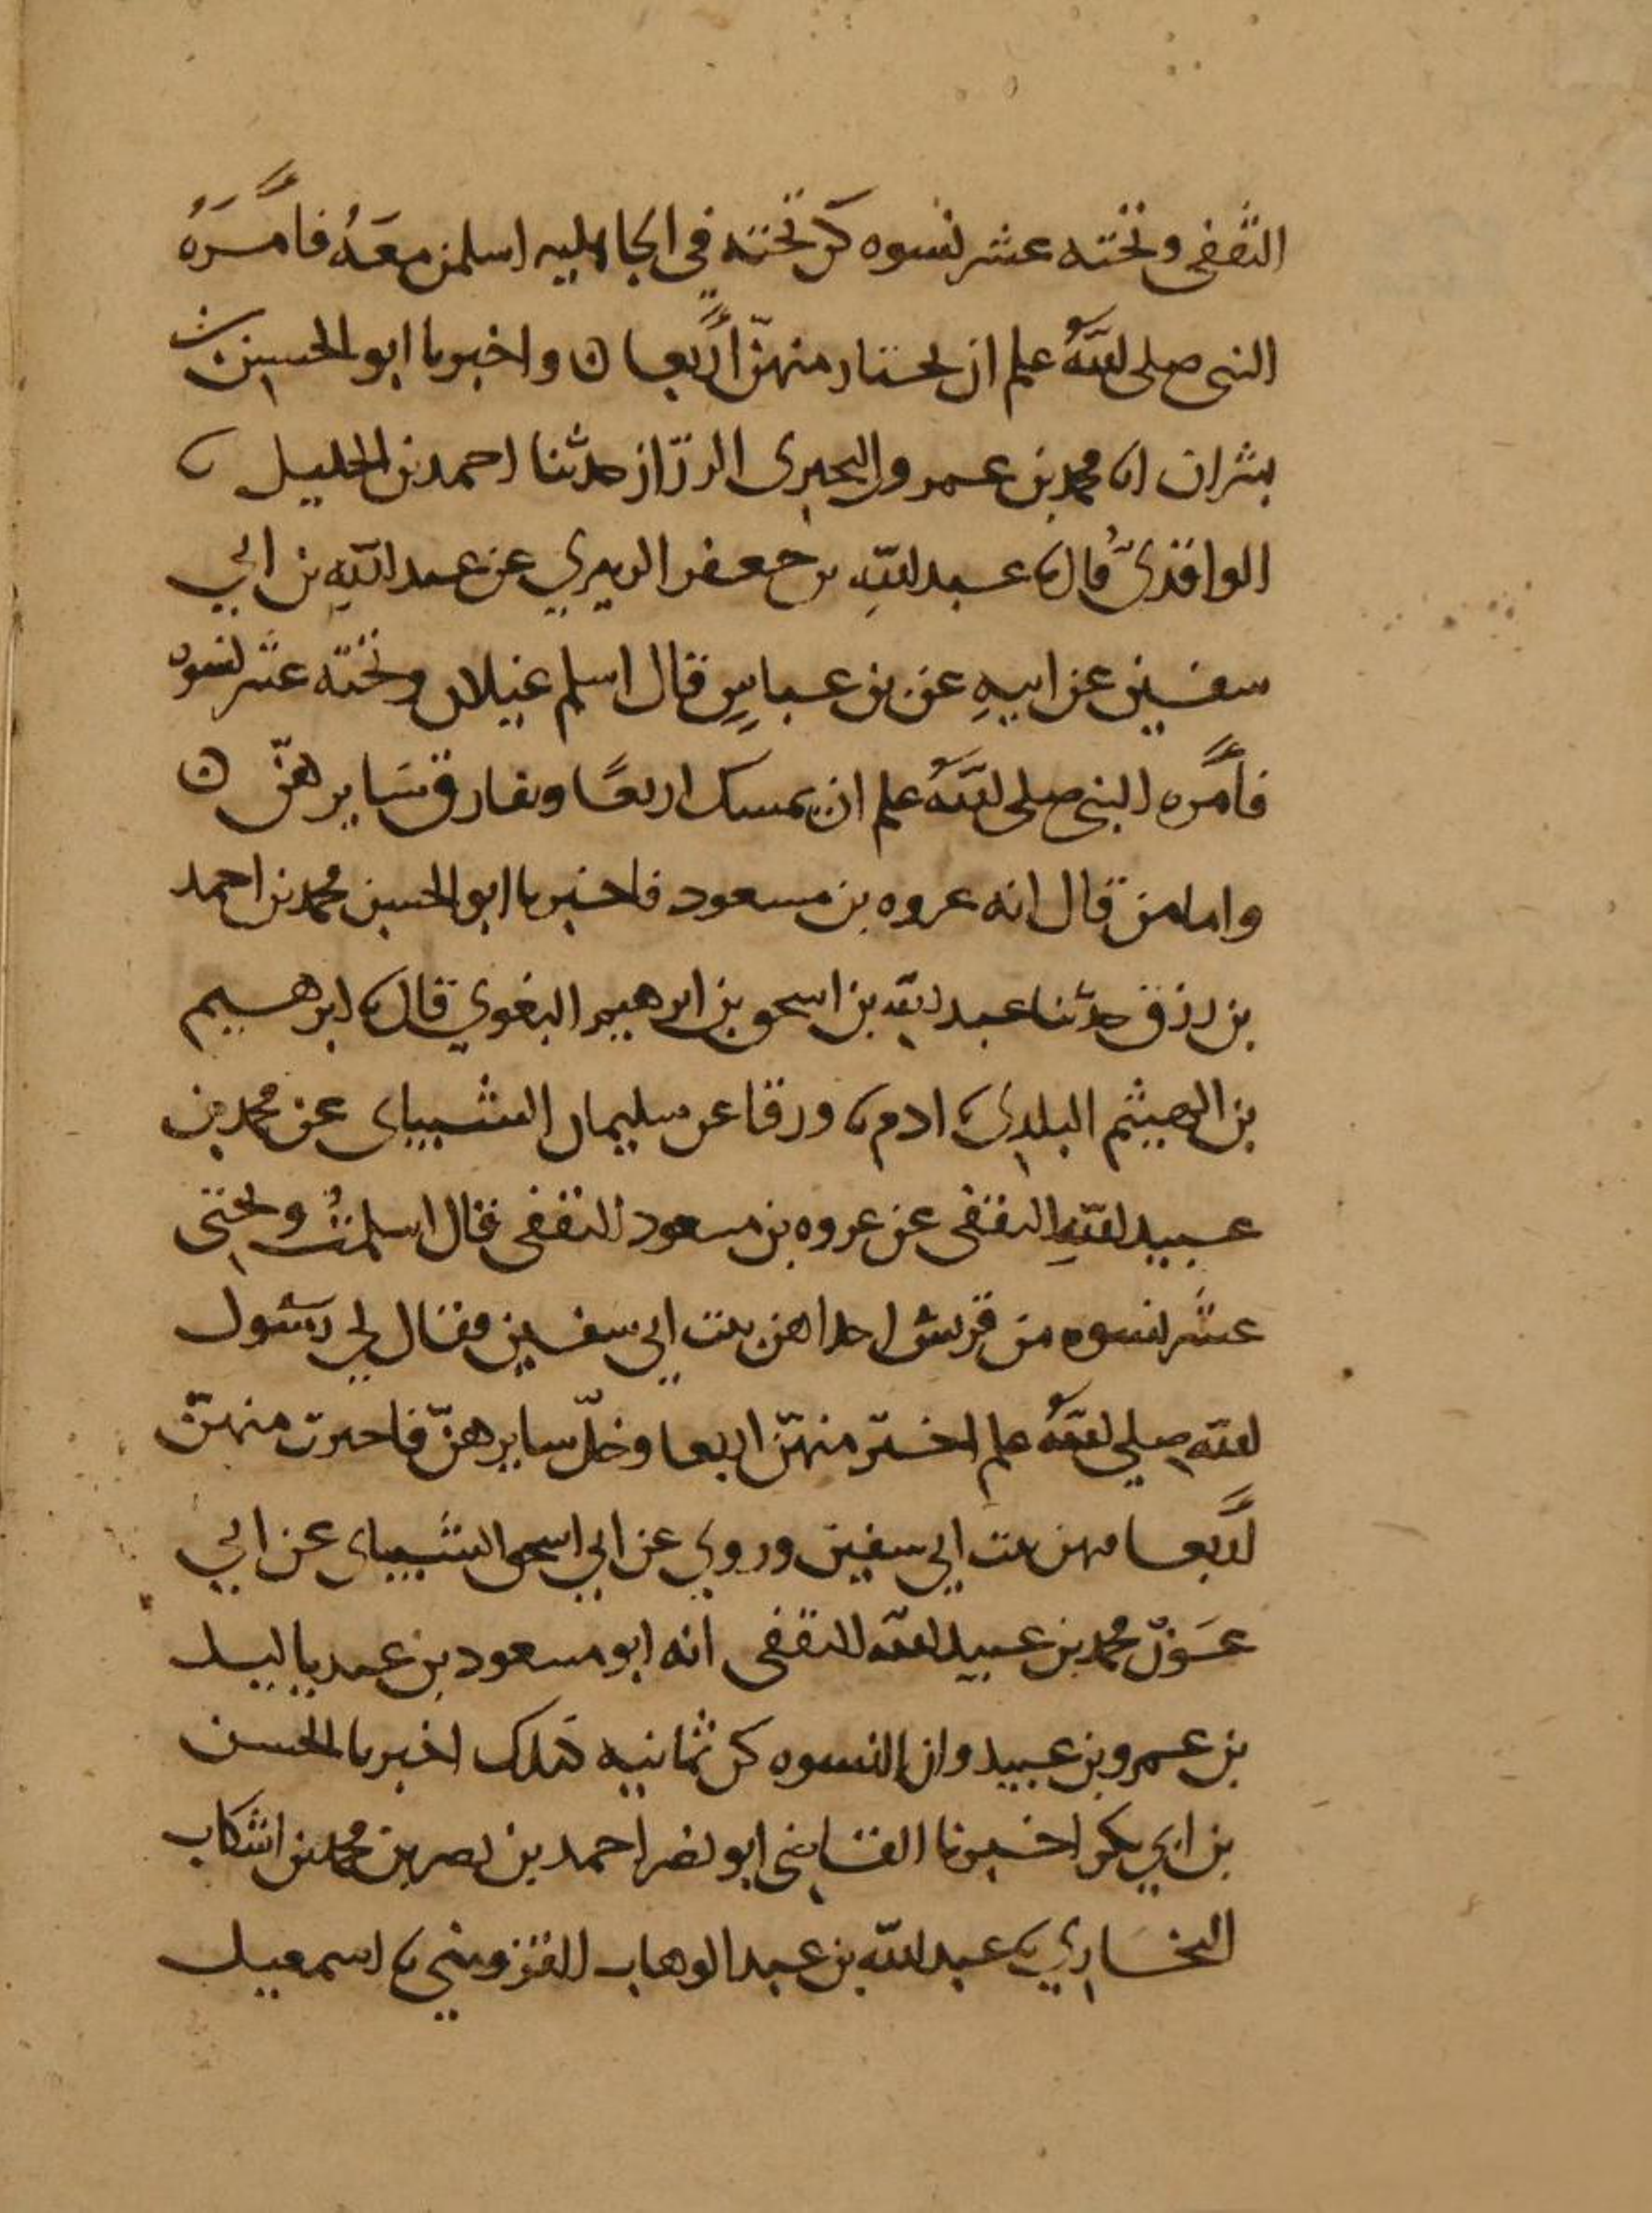 الثقفي وتحته عشر نسوه كن تحته في الجاهليه اسلمن معه فامره
النبي صلى الله علم ان يختار منهن اربعا ه واخبرنا ابو الحسين بن
بشران انا محمد بن عمرو البحيرى الرزاز حدثنا احمد بن الخليل نا
الواقدي قال نا عبد الله بن جعفر الزهري عن عبد الله بن ابي
سفين عن ابيه عن بن عباس قال اسلم غيلان وتحته عشر نسوه
فامره النبي صلى الله علم ان يمسك اربعا ويفارق سايرهن ه
واما من قال انه عروه بن مسعود فاخبرنا ابو الحسين محمد بن احمد
بن رزق حدثنا عبد الله بن اسحق بن ابرهيم البغوي قال نا ابرهيم
بن الهيثم البلدي نا ادم نا ورقا عن سليمان الشيباني عن محمد بن
عبيد الله الثقفي عن عروه بن مسعود الثقفي قال اسلمت وتحتي
عشر نسوه من قريش احداهن بنت ابي سفين فقال لي رسول
الله صلي الله علم اختر منهن اربعا وخل سايرهن فاخترت منهن
اربعا منهن بنت ابي سفين وروي عن ابي اسحق الشيباني عن ابي
عون محمد بن عبيد الله الثقفي انه ابو مسعود بن عبد ياليل
بن عمرو بن عبيد وان النسوه كن ثمانيه كذلك اخبرنا الحسن
بن ابي بكر اخبرنا القاضي ابو نصر احمد بن نصر بن محمد بن اشكاب
البخاري نا عبد الله بن عبد الوهاب القزويني نا اسمعيل